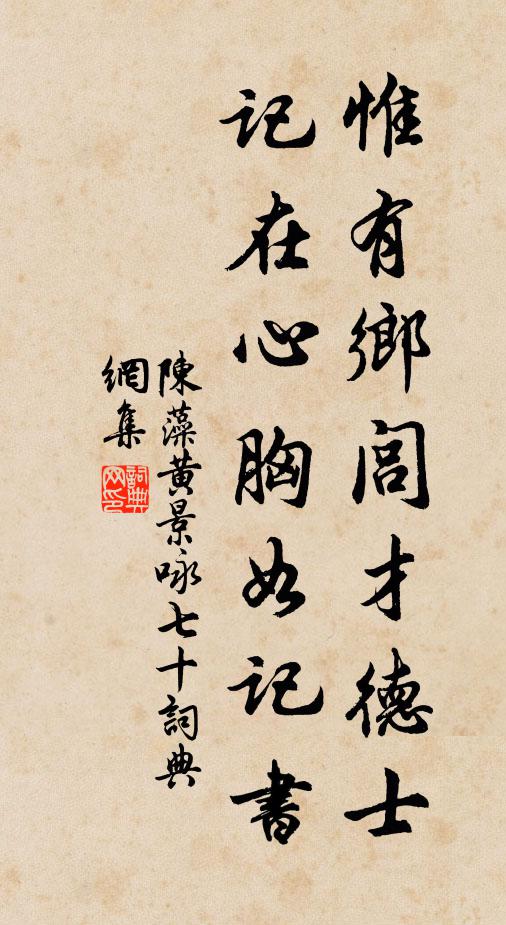 惟有鄉閭才德士
記在心胸如記書
陳藻黃景咏七十詞典
網集
詞典
網印